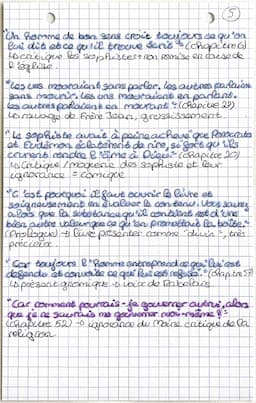 5
"Un homme de bon sens croit toujours ce qu'on
lui dit et ce qu'il trouve écrit" (chapitre 6)
↳ critique les sophistes → non remise en cause de
"Les uns mouraient sans parler, les autres parlaient
sans mourir. Les uns mouraient en parlant,
les autres parlaient en mourant" (chapitre 27)
↳ ravage de Frère Jean, grossissement
"Le sophiste avait à peine achevé que Ponocrates
et Eudémon éclatèrent de rire, si fort qu'ils
crurent rendre l'âme à Dieu" (chapitre 20)
↳ critique / moquerie des sophistes et leur
ignorance = comique
"C'est pourquoi il faut ouvrir le livre et
soigneusement en évaluer le contenu. Vous saurez
alors que la substance qu'il contient est d'une
bien autre valeur que ce qu'en promettait la boîte."
(Prologue) → livre présenter comme "divin", très
précieux
"Car toujours l'homme entreprend ce qui lui est
défendu et convoite ce qui lui est refusé." (chapitre 57)
↳ présent gnomique → voix de Rabelais
"Car comment pourrais-je gouverner autrui, alors
que je ne saurais me gouverner moi-même ?"
(chapitre 52) → ignorance du moine critique de la
religion